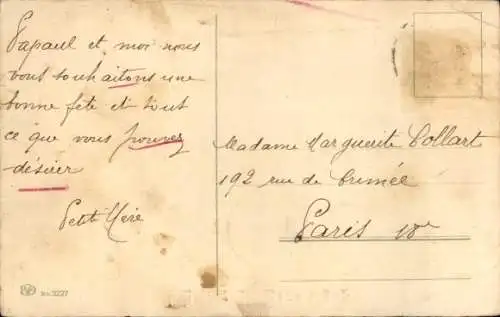 Papaul et moi nous
vous souhaitons une
bonne fete et tout
ce que vous pouvez
désirer
Petit Mère
Madame Marguerite Collart
192 rue de Crimée
Paris
No. 3227